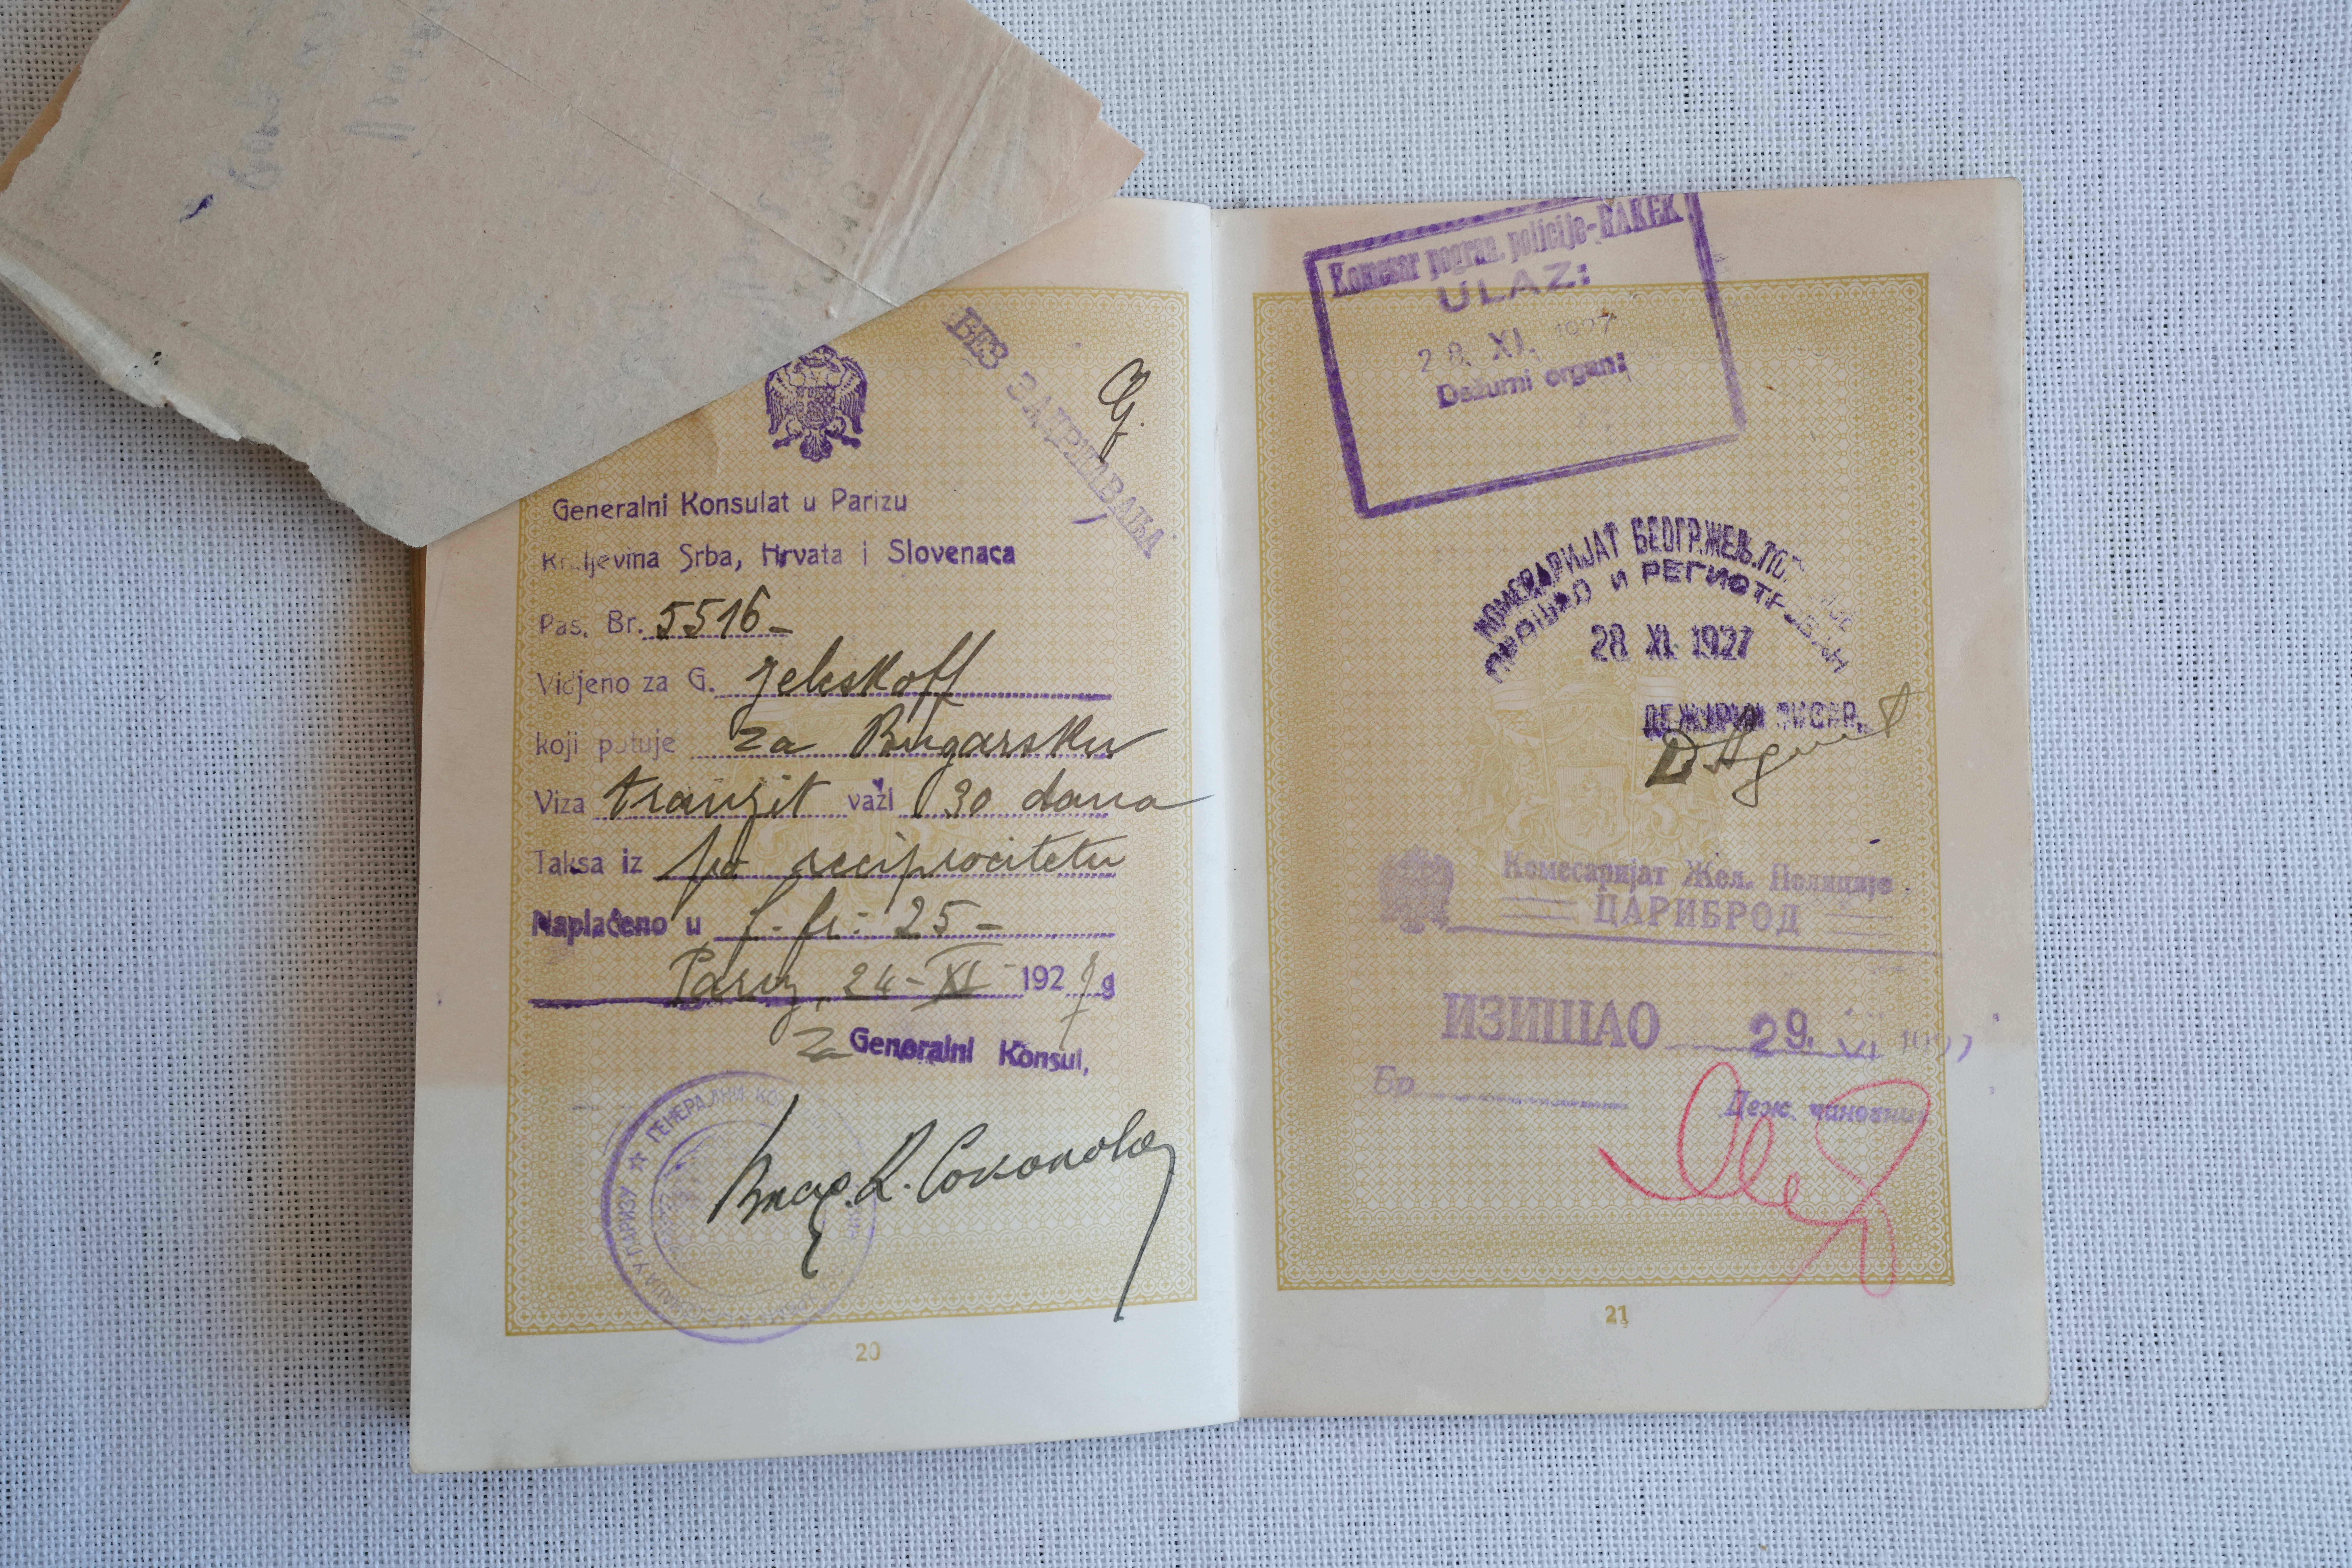 БЕЗ ЗАДРЖАВАЊА
Generalni Konsulat u Parizu
Kraljevina Srba, Hrvata i Slovenaca
Pas. Br. 5516-
Vidjeno za G. Jeleskoff
koji putuje za Bugarsku
Viza tranzit važi 30 dana
Taksa iz po reciprocitetu
Naplaćeno u f. fr: 25-
Pariz, 24-XI- 1927 g
za Generalni Konsul,
ГЕНЕРАЛНИ
20
Komesar pogran. policije-RAKEK
ULAZ:
28. XI. 1927
Dežurni organ:
КОМЕСАРИЈАТ БЕОГР. ЖЕЉ. ПОЛ.
ПРИЈАВЉЕН И РЕГИСТРОВАН
28 XI. 1927
ДЕЖУРНИ ПИСАР,
Комесаријат Жел. Полиције
ЦАРИБРОД
ИЗИШАО 29.
Бр
Деж. чиновник
21